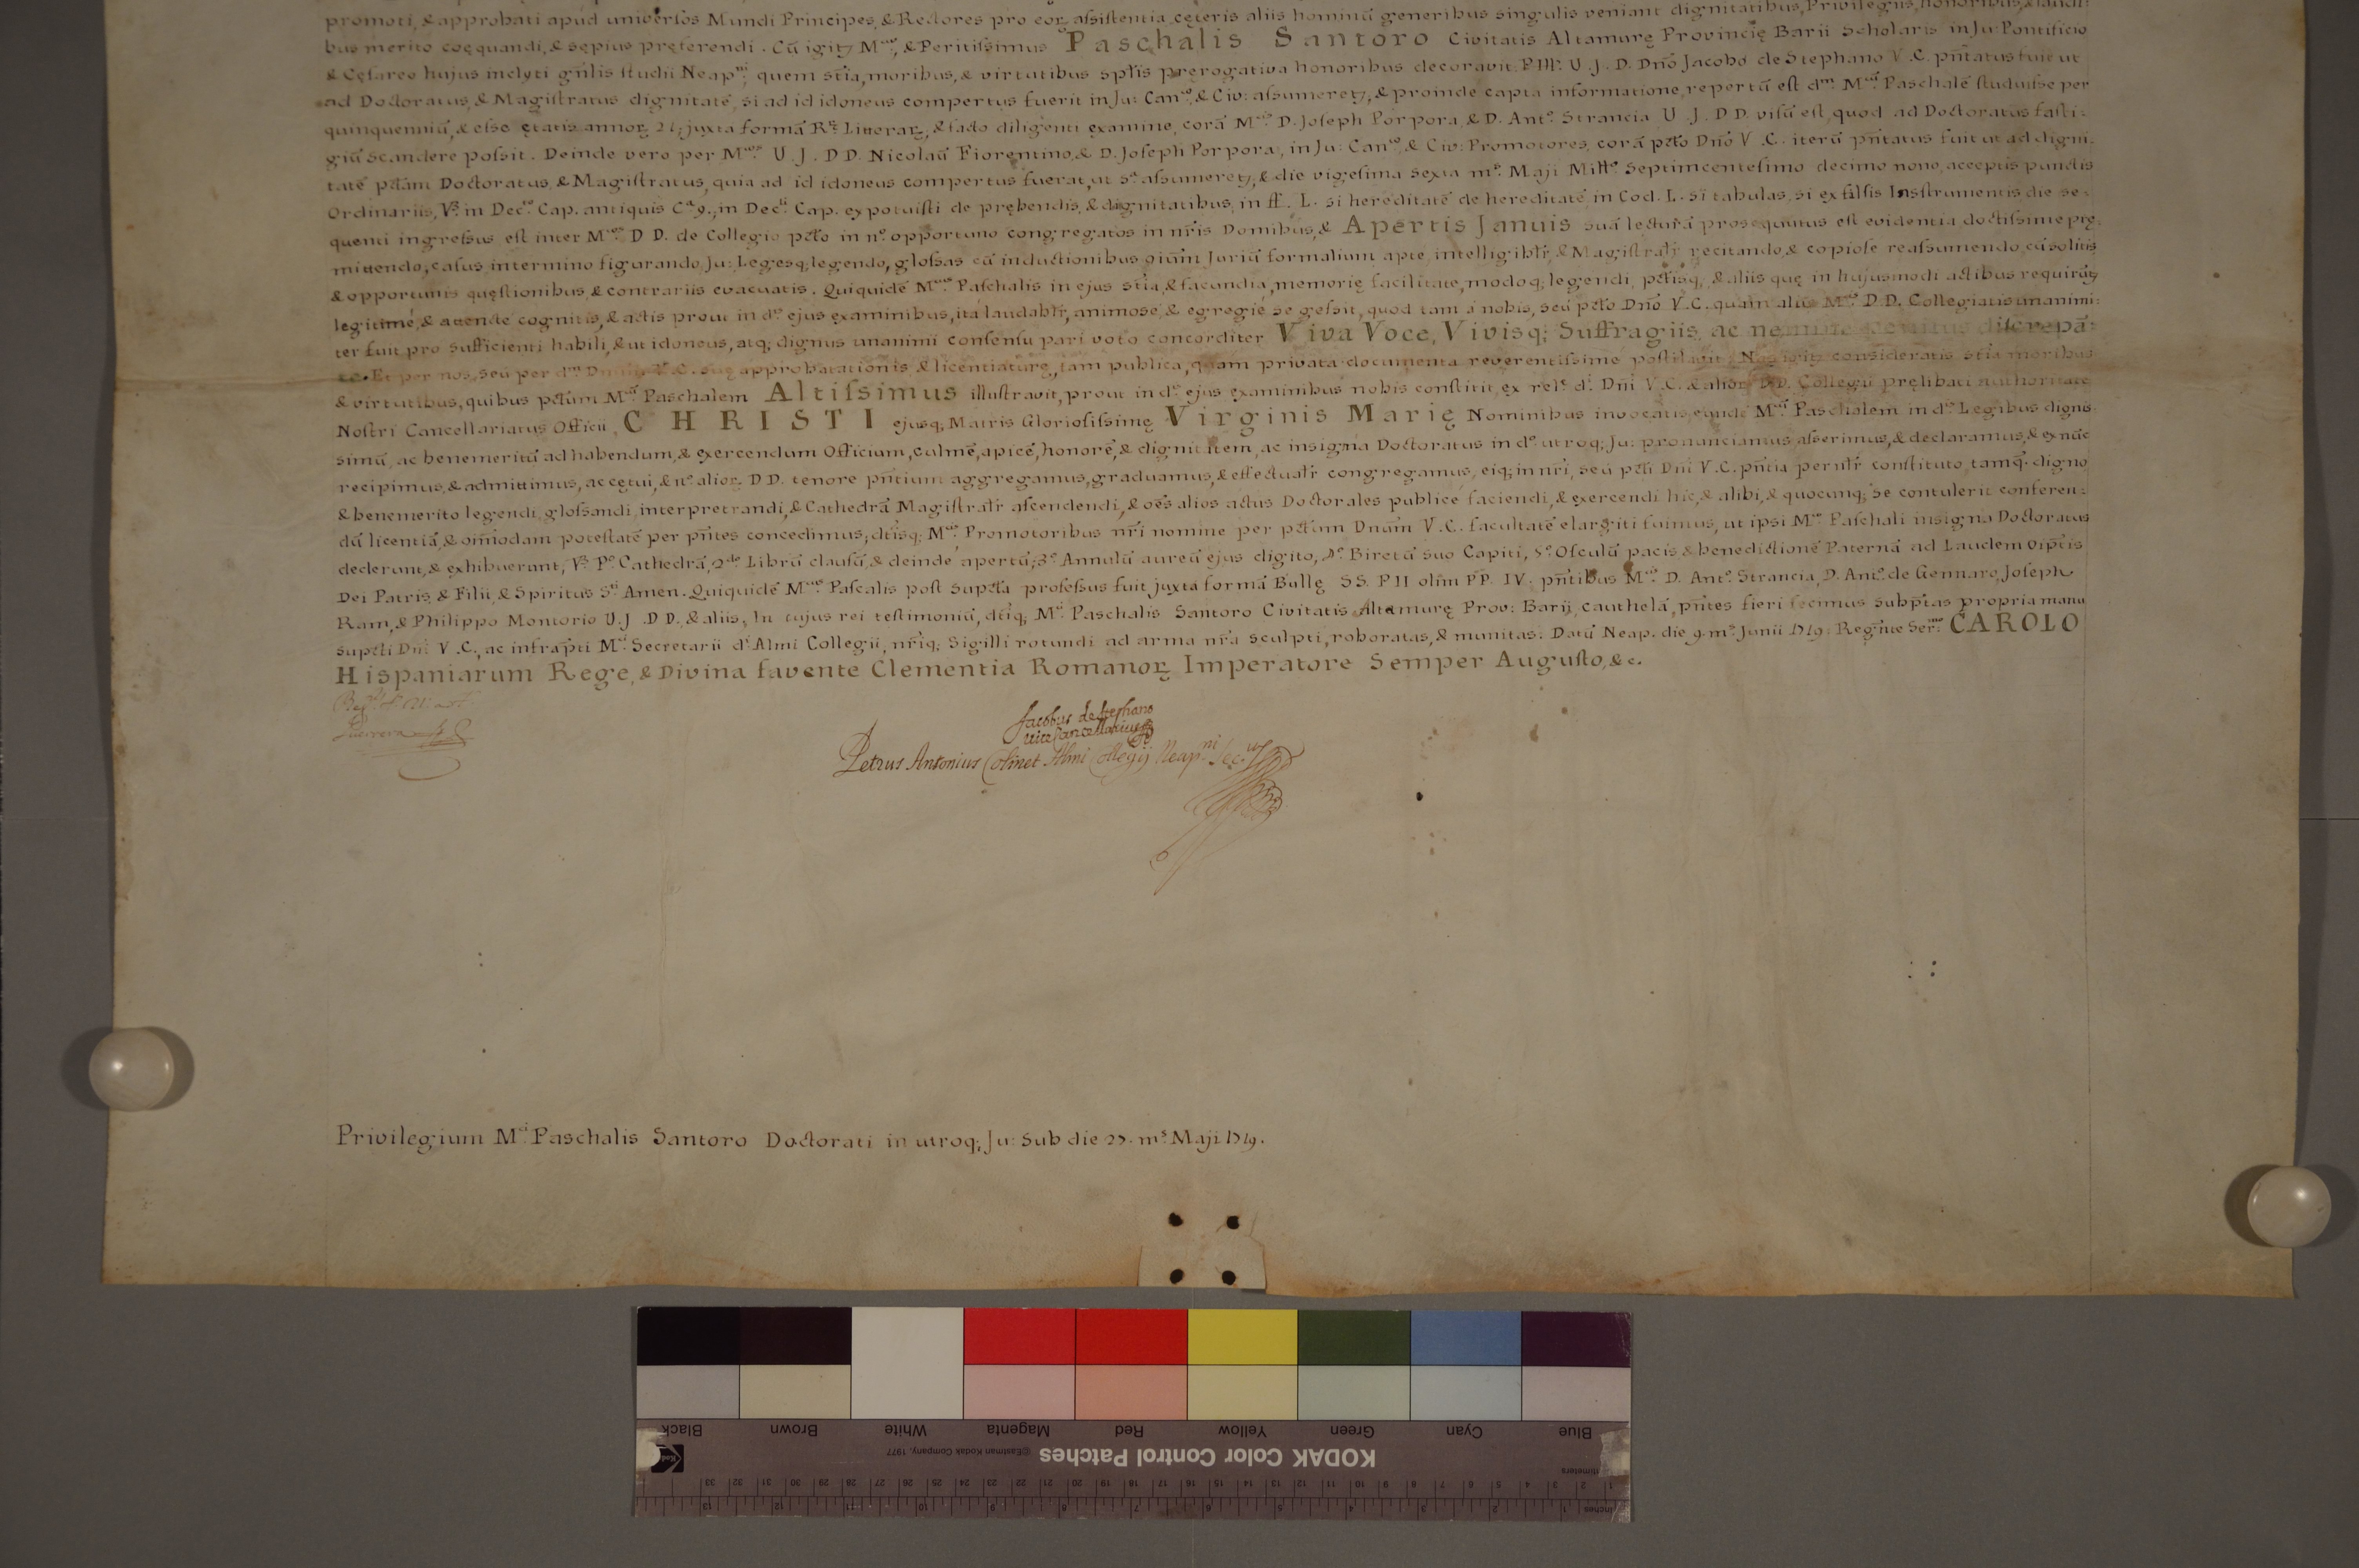 promoti, & approbati apud universos Mundi Principes, & Rectores pro eor, assistentia ceteris aliis hominū generibus singulis veniant dignitatibus, Privilegiis, honoribus, & laudi:
bus merito coęquandi, & sępius pręferendi. Cū igitʒ M.cus, & Peritissimus Paschalis Santoro Civitatis Altamurę Provincię Barii Scholaris in Ju: Pontificio
& Cęsareo hujus inclyti gn̄lis studii Neap.ni quem stīa, moribus, & virtutibus Splīs prerogativa honoribus decoravit. P. Ill. U. J. D. Dn̄o Jacobo de Stephano V. C. pn̄tatus fuit ut
ad Doctoratus, & Magistratus dignitatē, si ad id idoneus compertus fuerit in Ju: Can.co, & Civ: assumeretʒ, & proinde capta informatione, repertū est d.m M.cū Paschalē studuisse per
quinquenniū, & esse ętatis annoꝝ 21; juxta formā R. Litteraꝝ, & facto diligenti examine, corā M.cis D. Joseph Porpora, & D. Ant.o Strancia U. J. D D. visū est, quod ad Doctoratus fasti:
giū scandere possit. Deinde vero per M.cos U. J. D D. Nicolaū Fiorentino, & D. Joseph Porpora, in Ju: Can.co, & Civ: Promotores, corā pc̄to Dn̄o V. C. iterū pn̄tatus fuit ut ad digni:
tatē pc̄tam Doctoratus, & Magistratus, quia ad id idoneus compertus fuerat, ut S.a assumeretʒ, & die vigesima sexta m.s Maji Mill.o Septimcentesimo decimo nono, acceptis punctis
Ordinariis, V.ʒ in Dec.to Cap. antiquis C.a 9., in Dec.li Cap. expotuisti de prębendis, & dignitatibus, in ff. L. si hereditatē de hereditatē, in Cod. L. si tabulas, si ex falsis Instrumentis, die se:
quenti ingressus est inter M.cos D D. de Collegio pc̄to in n.o opportuno congregatos in nr̄is Domibus, & Apertis Januis suā lecturā prosequutus est evidentia doctissime prę:
mittendo, casus intermino figurando, Ju: Legesq; legendo, glossas cū inductionibus oium̄ Juriū formalium apte, intelligiblr̄, & Magistralr̄ recitando, & copiose reassumendo, cū solitis,
& opportunis quęstionibus, & contrariis evacuatis. Quiquidē M.cus Paschalis in ejus stīa, & facundia, memorię facilitate, modoq; legendi, pc̄tisq; & aliis quę in hujusmodi actibus requirūtʒ
legitimē, & attentē cognitis, & actis prout in d.o ejus examinibus, ita laudablr̄, animose, & egregiē se gessit, quod tam à nobis, seū pc̄to Dn̄o V. C. quam aliis M.cis D. D. Collegiatis unanimi:
ter fuit pro sufficienti habili, & ut idoneus, atq; dignus unanimi consensu pari voto concorditer Viva Voce, Vivisq; Suffragiis, ac nemine penitus discrepā:
te. Et per nos, seū per d.m V. C. suę approbatationis & licentiaturę, tam publica, quàm privata documenta reverentissimē postilavit. Nos igitʒ consideratis stīa moribus
& virtutibus, quibus pc̄tum M.cū Paschalem Altissimus illustravit, prout in d.o ejus examinibus nobis constitit, ex rel.e d.i Dn̄i V. C. & alioꝝ D D. Collegii prelibati authoritate
Nostri Cancellariatus Officii, CHRISTI ejusq; Matris Gloriosissimę Virginis Marię Nominibus invocatis, eundē M.cū Paschalem in d.o Legibus dignis:
simū, ac benemeritū ad habendum, & exercendum Officium, culmē, apicē, honorē, & dignitatem, ac insignia Doctoratus in d.o utroq; Ju: pronunciamus, asserimus, & declaramus, & ex nūc
recipimus, & admittimus, ac cętui, & n.o alioꝝ D D. tenore pn̄tium aggregamus, graduamus, & effectualr̄ congregamus, eiq; in nr̄i, seu pc̄ti Dn̄i V. C. pn̄tia personlr̄ constituto, tamq. digno
& benemerito legendi, glossandi, interpretrandi, & Cathedrā Magistralr̄ ascendendi, & oēs alios actus Doctorales publicē faciendi, & exercendi hic, & alibi, & quocunq; se contulerit conferen:
dū licentiā, & om̄iodam potestatē per pn̄tes concedimus; dc̄tisq; M.cis Promotoribus nr̄i nomine per pc̄tum Dnum̄ V. C. facultatē elargiti fuimus, ut ipsi M.co Paschali insignia Doctoratus
dederunt, & exhibuerunt, V.ʒ P.o Cathedrā, 2.do Librū clausū, & deinde apertū, 3.o Annulū aureū ejus digito, 4.o Biretū suo Capiti, 5.o Osculū pacis & benedictionē Paternā ad Laudem oip̄tis
Dei Patris, & Filii, & Spiritus S.ti Amen. Quiquidē M.cus Pascalis post Supc̄ta professus fuit juxta formā Bullę SS. P II olim PP. IV: pn̄tibus M.cis D. Ant.o Strancia, D. Ant.o de Gennaro, Joseph
Ram, & Philippo Montorio U. J. D D., & aliis, In cujus rei testimoniū, dc̄tiq; M.ci Paschalis Santoro Civitatis Altamurę Prov: Barii, cauthelā, pn̄tes fieri fecimus subp̄tas propria manu
supc̄ti Dn̄i V. C., ac infrap̄ti M.ci Secretarii d.i Almi Collegii, nr̄iq; Sigilli rotundi ad arma nr̄a sculpti, roboratas, & munitas. Datū Neap. die 9. m.s Junii 1719. Regn̄te Ser.mo CAROLO
Hispaniarum Rege, & Divina favente Clementia Romanoꝝ Imperatore Semper Augusto, &c.
Jacobus de Stephano
Vice Cancellarius
Guerrera
Petrus Antonius Colinet Almi Collegij Neap.ni Sec.us
Privilegium M.ci Paschalis Santoro Doctorati in utroq; Ju: Sub die 27. m.s Maji 1719.
Black Brown White Magenta Red Yellow Green Cyan Blue
KODAK Color Control Patches
©Eastman Kodak Company, 1977